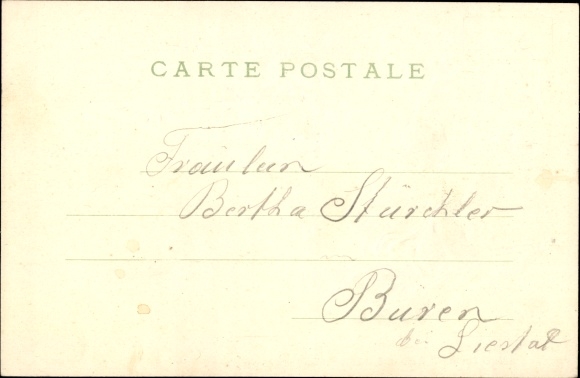 CARTE POSTALE
Fräulein
Bertha Stürchler
Buren
bei Liestal